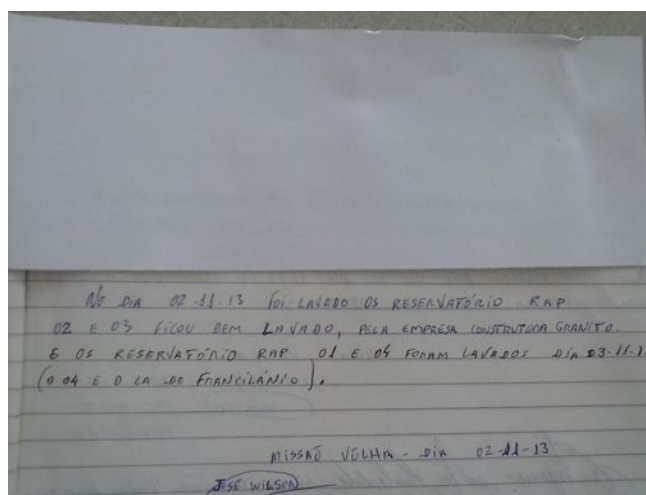 No DIA 02-11-13 FOI LAVADO OS RESERVATÓRIO RAP
02 E 03 FICOU BEM LAVADO, PELA EMPRESA CONSTRUTORA GRANITO.
E OS RESERVATÓRIO RAP 01 E 04 FORAM LAVADOS DIA 03-11-1
(O 04 E O LA DO FRANCILÂNIO).
MISSAÕ VELHA - DIA 02-11-13
JOSÉ WILSON